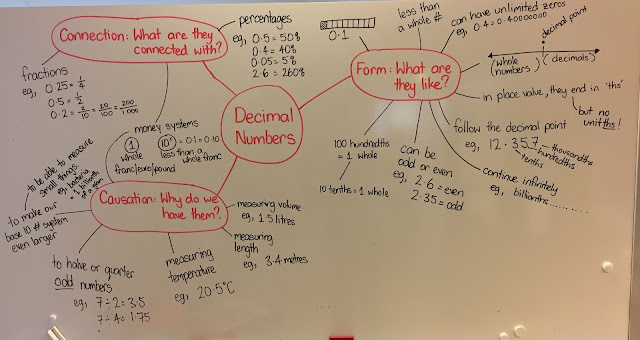 Decimal
Numbers
Connection: What are they
connected with?
percentages
eg, 0·5 = 50%
0·4 = 40%
0·05 = 5%
2·6 = 260%
fractions
eg, 0·25 = 1/4
0·5 = 1/2
0·2 = 2/10 = 20/100 = 200/1000
money systems
1 10¢ = 0·1 = 0·10
whole less than a
franc/euro/pound whole franc
Form: What are
they like?
0·1
less than
a whole #
can have unlimited zeros
eg, 0·4 = 0·40000000
decimal point
(whole
numbers) (decimals)
in place value, they end in 'ths'
but no
unitths!
follow the decimal point
eg, 12·357
thousandths
hundredths
tenths
continue infinitely
eg, billionths...........
can be
odd or even
eg, 2·6 = even
2·35 = odd
100 hundredths
= 1 whole
10 tenths = 1 whole
Causation: Why do we
have them?
to be able to measure
small things.
eg, bacteria
= 1 billionth
of a gram
to make our
base 10 # system
even larger
to halve or quarter
odd numbers
eg, 7÷2 = 3·5
7÷4 = 1·75
measuring
temperature
eg, 20·5°C
measuring volume
eg, 1·5 litres
measuring
length
eg, 3·4 metres